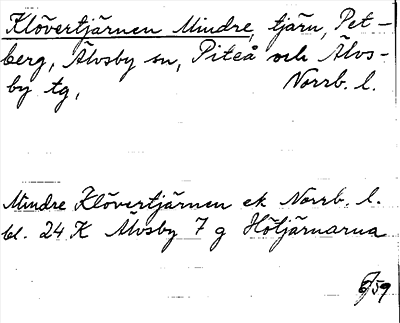 Klövertjärnen Mindre, tjärn, Pet-
berg, Älvsby sn, Piteå och Älvs-
by tg, Norrb. l.
Mindre Klövertjärnen ek Norrb. l.
bl. 24 K Älvsby 7 g Höljärnarna
6/59